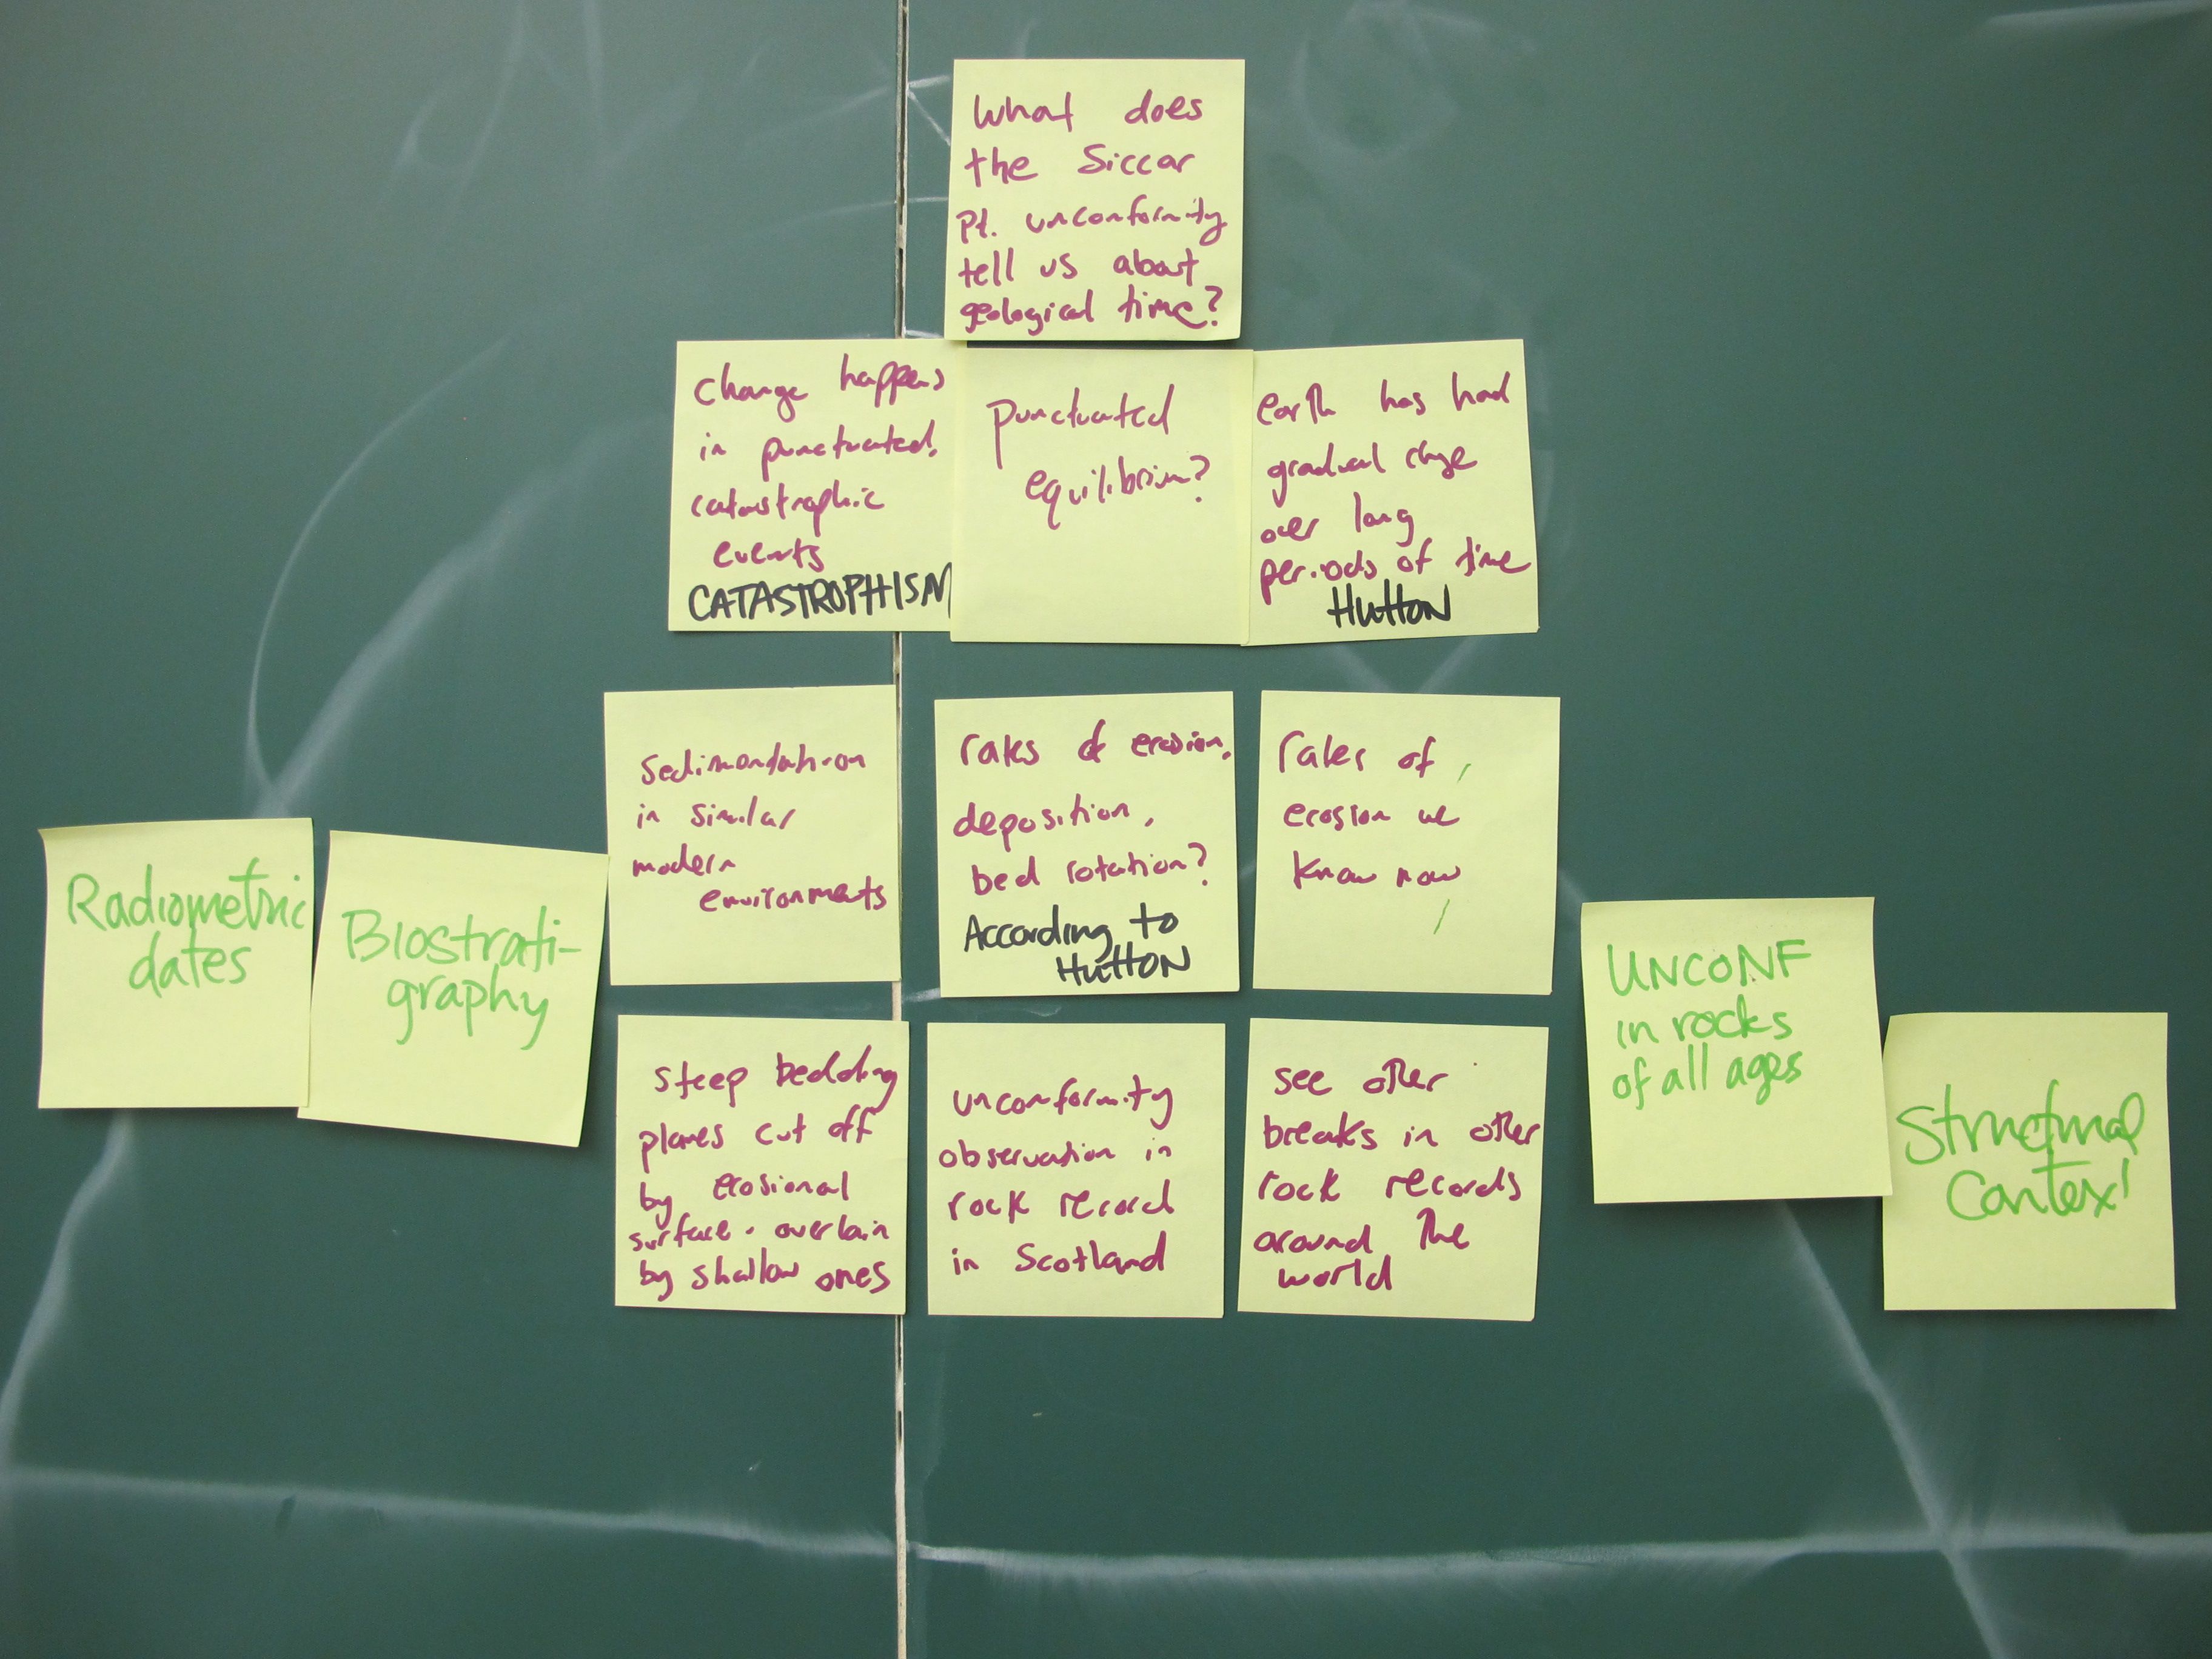 What does
the Siccar
pt. unconformity
tell us about
geological time?
change happens
in punctuated,
catastrophic
events
CATASTROPHISM
punctuated
equilibrium?
earth has had
gradual chnge
over long
periods of time
HUTTON
Sedimendation
in similar
modern
environments
rates of erosion,
deposition,
bed rotation?
According to
HUTTON
rates of
erosion we
know now
Radiometric
dates
Biostrati-
graphy
UNCONF
in rocks
of all ages
Structural
Context
steep bedding
planes cut off
by erosional
surface. overlain
by shallow ones
unconformity
observation in
rock record
in Scotland
see other
breaks in other
rock records
around the
world